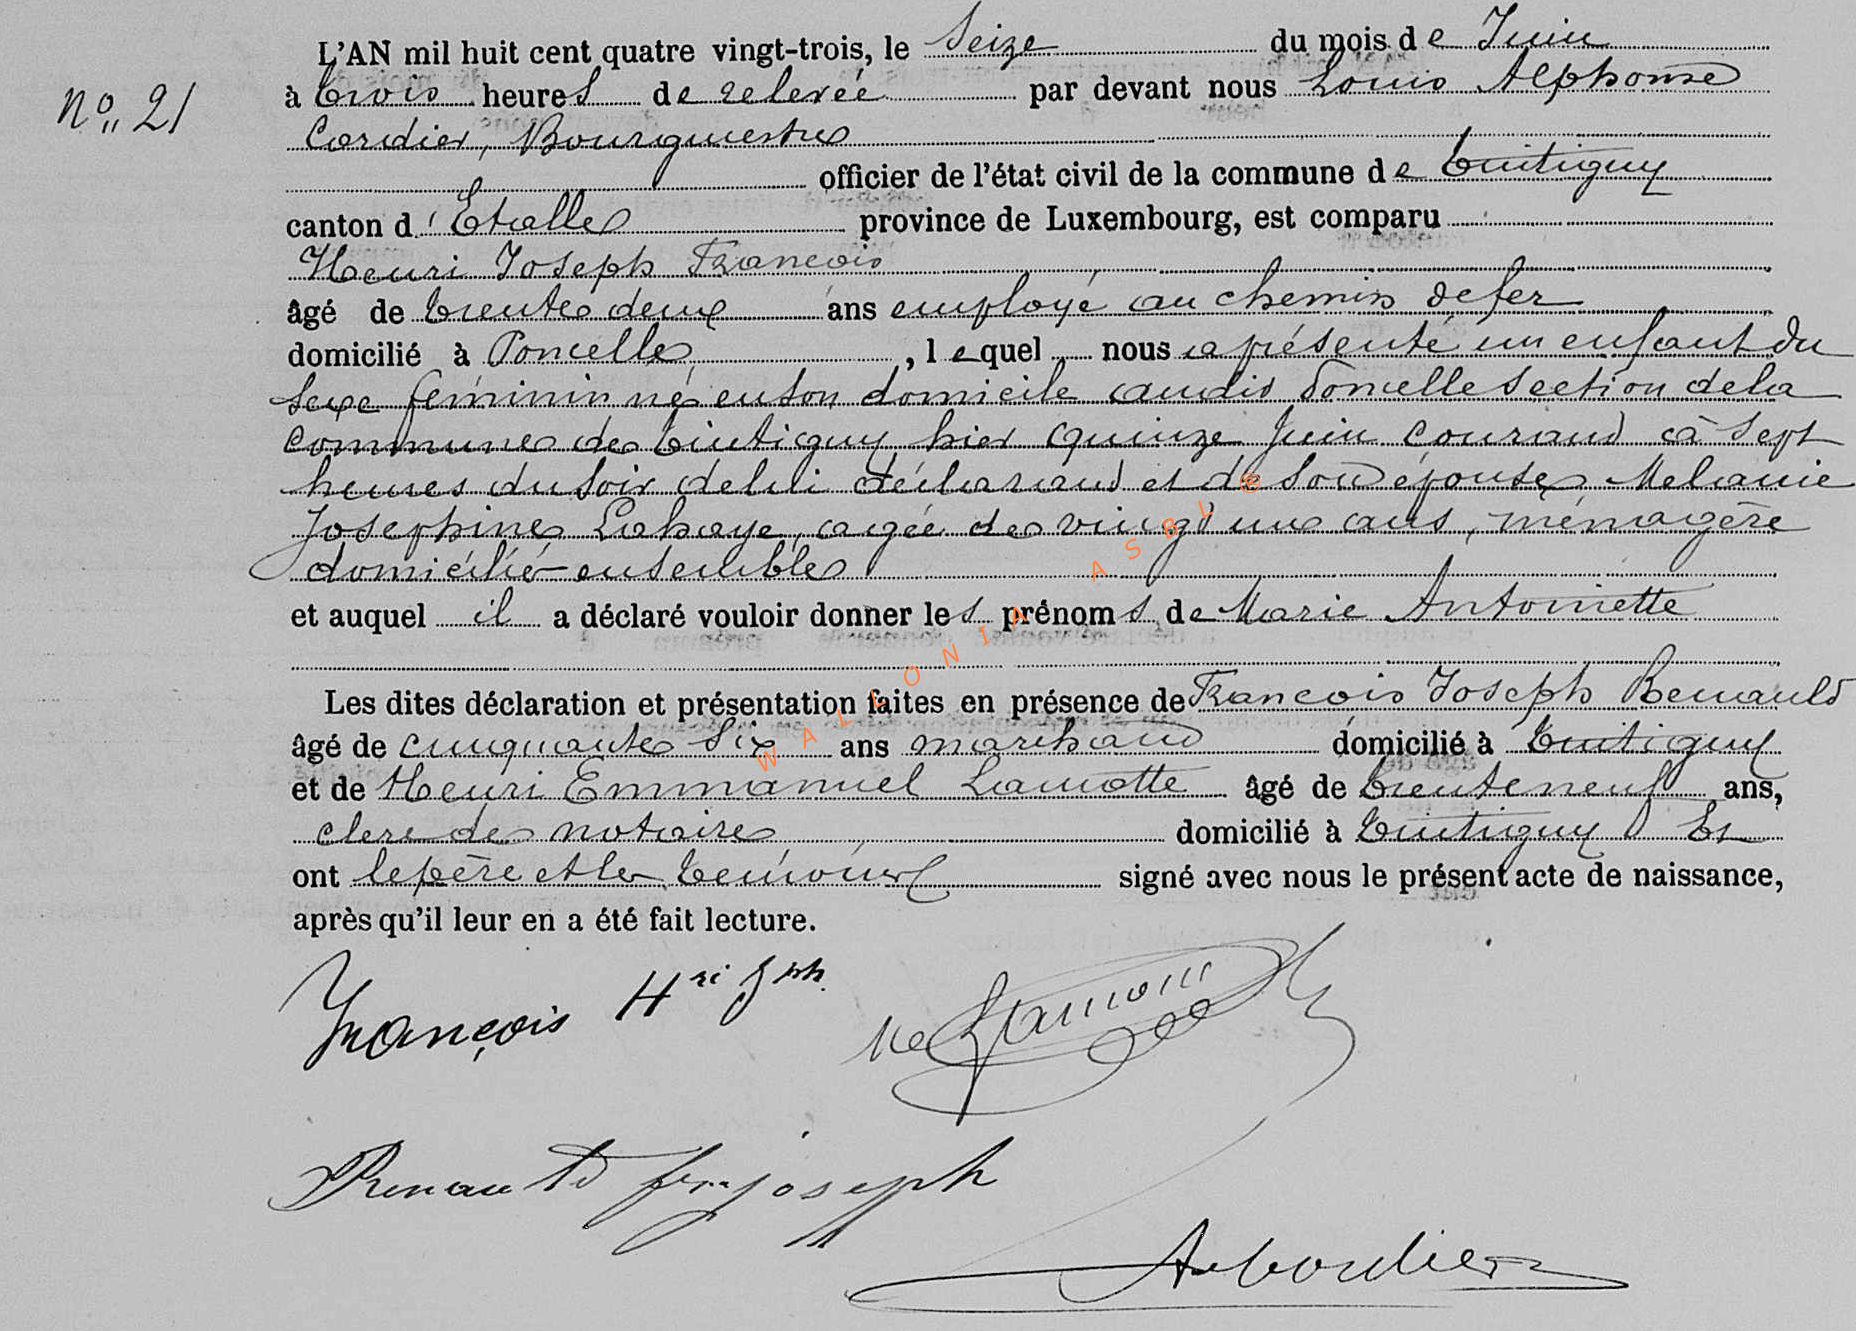 L'AN mil huit cent quatre vingt-trois, le Seize du mois de Juin
No 21
à trois heures de relevée par devant nous Louis Alphonse
Cordier, Bourgmestre
officier de l'état civil de la commune de Tintigny
canton d'Etalle province de Luxembourg, est comparu
Henri Joseph Francois
âgé de trente deux ans employé au chemin de fer
domicilié à Poncelle, lequel nous a présenté un enfant du
sexe féminin né en son domicile audit Poncelle section de la
commune de Tintigny hier quinze Juin courant à sept
heures du soir de lui déclarant et de son épouse Melanie
Josephine Lahaye, agée de vingt une ans, ménagère
domicilié ensemble
et auquel il a déclaré vouloir donner les prénoms de Marie Antoinette
Les dites déclaration et présentation faites en présence de Francois Joseph Renauld
âgé de cinquante six ans marchand domicilié à Tintigny
et de Henri Emmanuel Lamotte âgé de trente neuf ans,
clerc de notaire domicilié à Tintigny Et
ont le père et les témoins signé avec nous le présent acte de naissance,
après qu'il leur en a été fait lecture.
François Hri Jph
Renauld frs joseph
A Cordier
WALLONIA ASBL ©